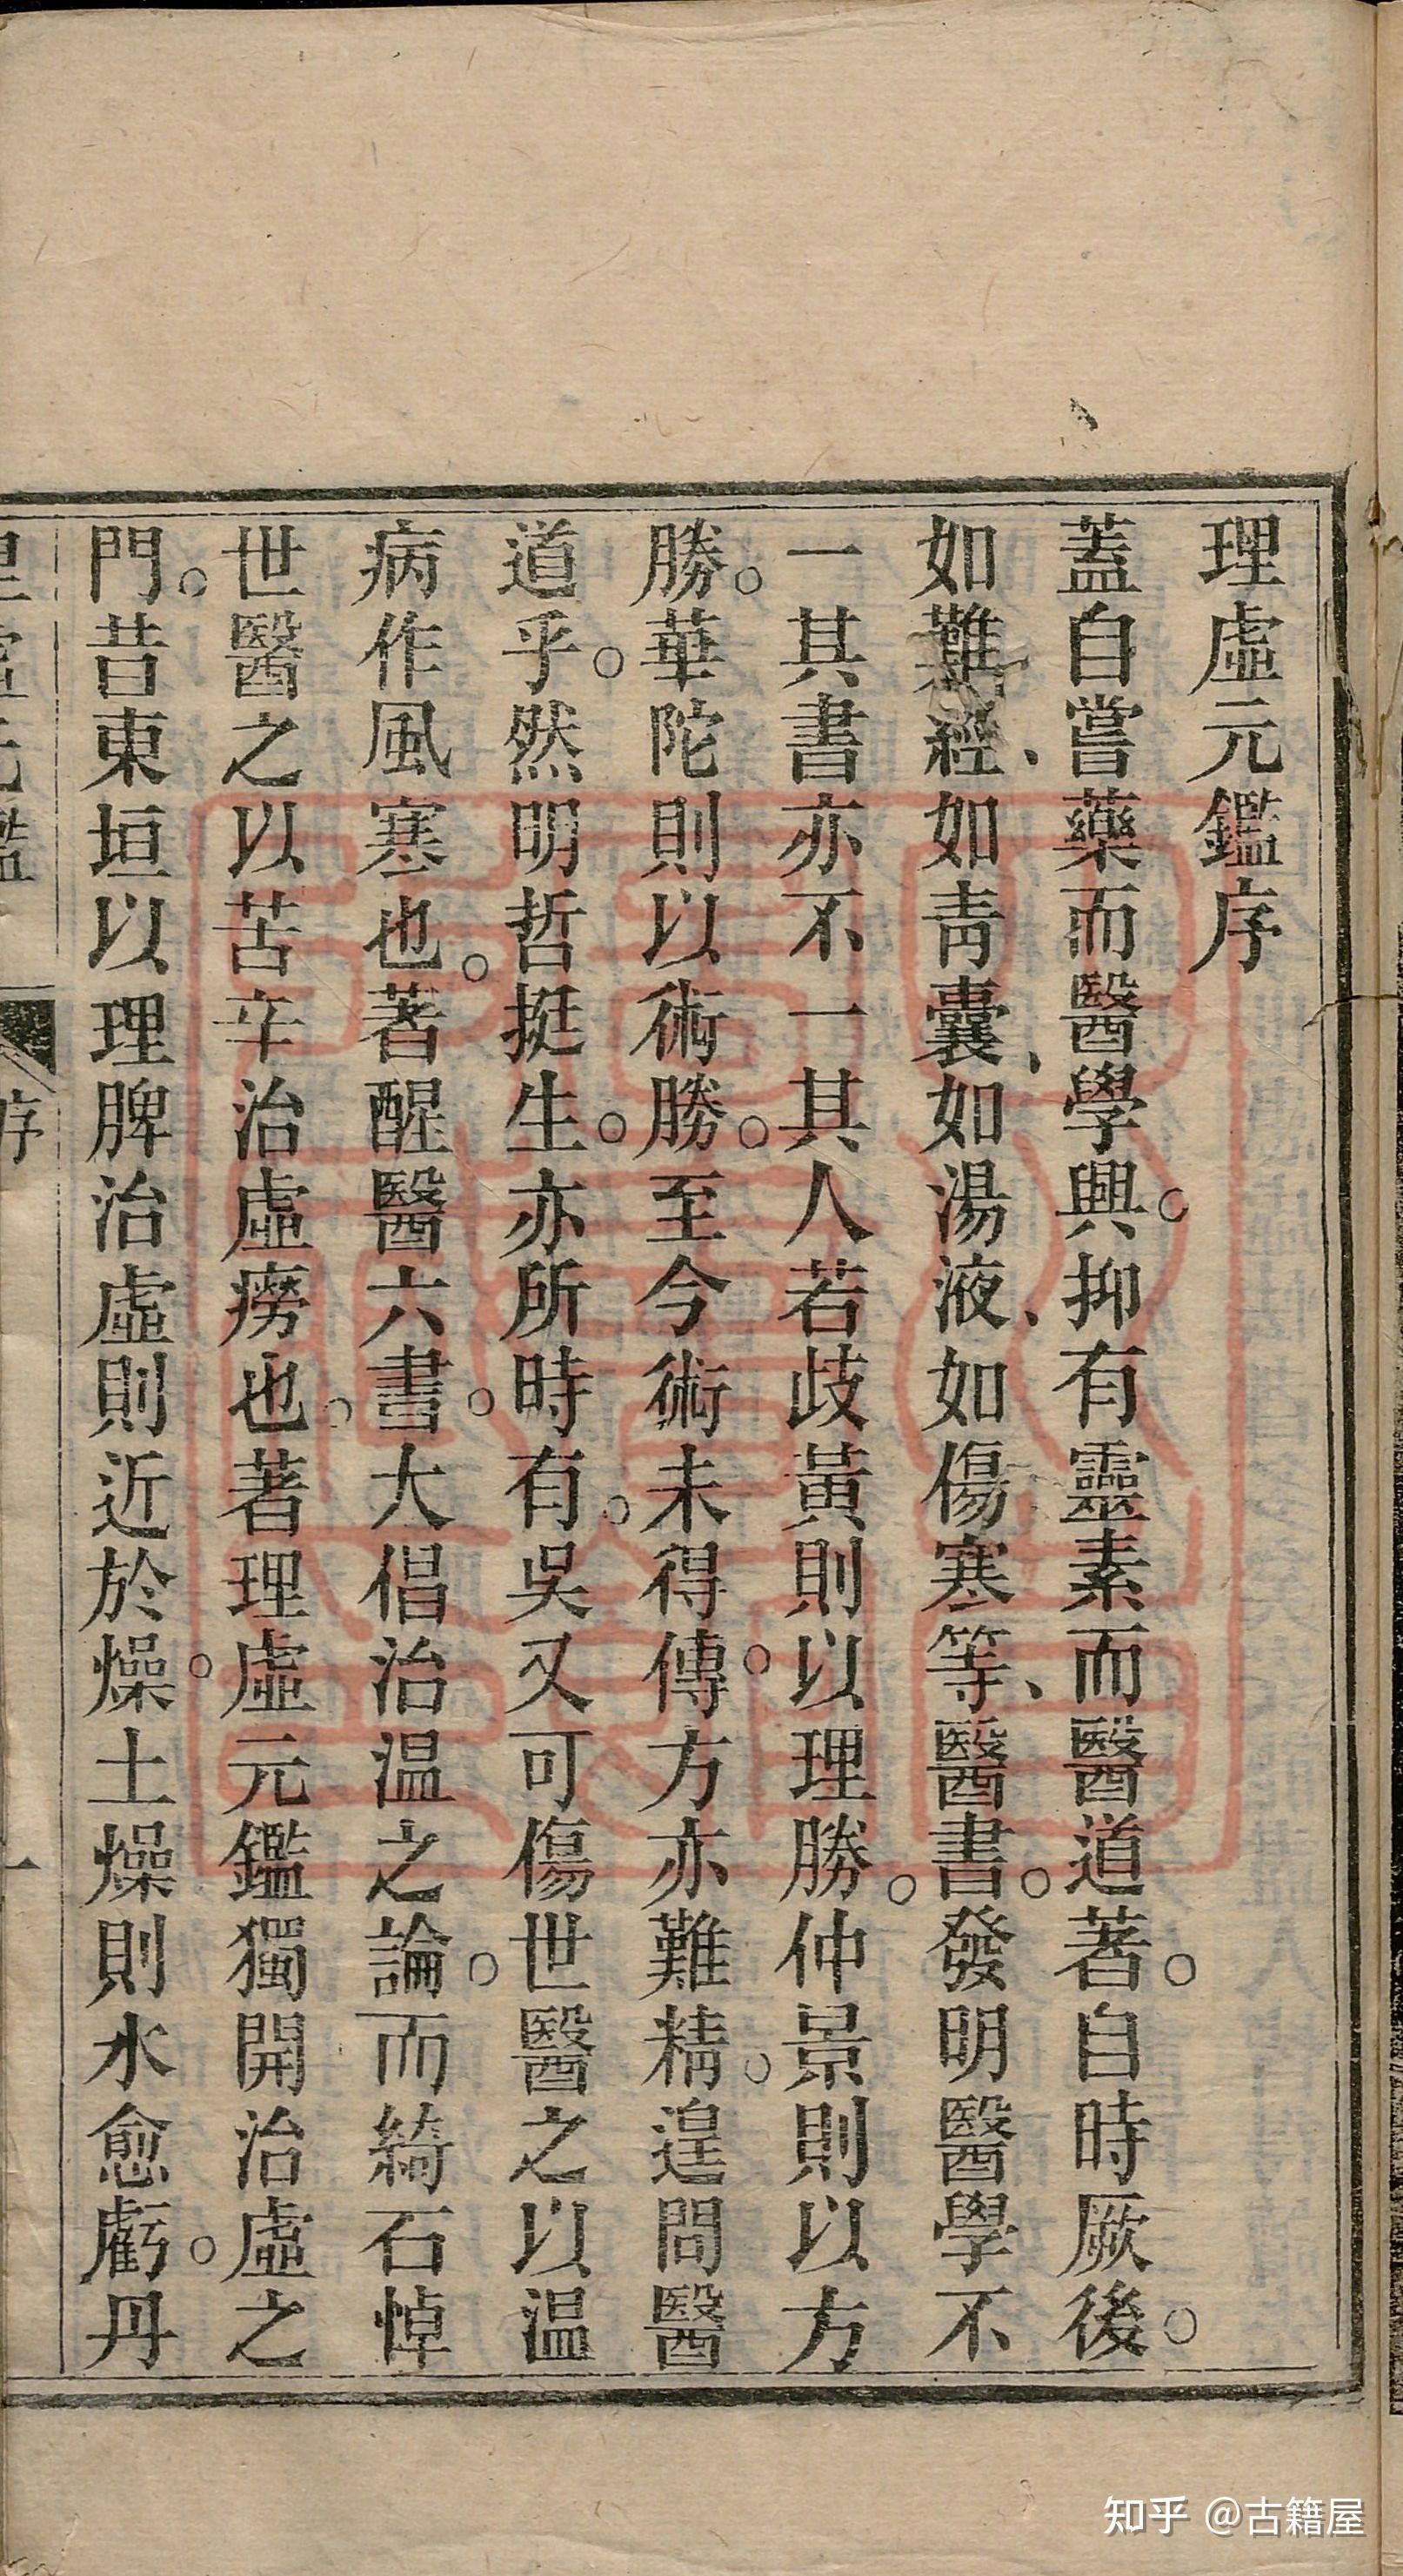 理虛元鑑序
蓋自嘗藥而醫學興。抑有靈素而醫道著。自時厥後。
如難經、如靑囊、如湯液、如傷寒等、醫書。發明醫學不
一其書亦不一其人若歧黃則以理勝。仲景則以方
勝。華陀則以術勝。至今術未得傳。方亦難精。遑問醫
道乎。然明哲挺生。亦所時有。吳又可傷世醫之以温
病作風寒也。著醒醫六書。大倡治温之論。而綺石悼
世醫之以苦辛治虛癆也。著理虛元鑑獨開治虛之
門。昔東垣以理脾治虛則近於燥。土燥則水愈虧。丹
理虛元鑑
序
一
知乎 @古籍屋